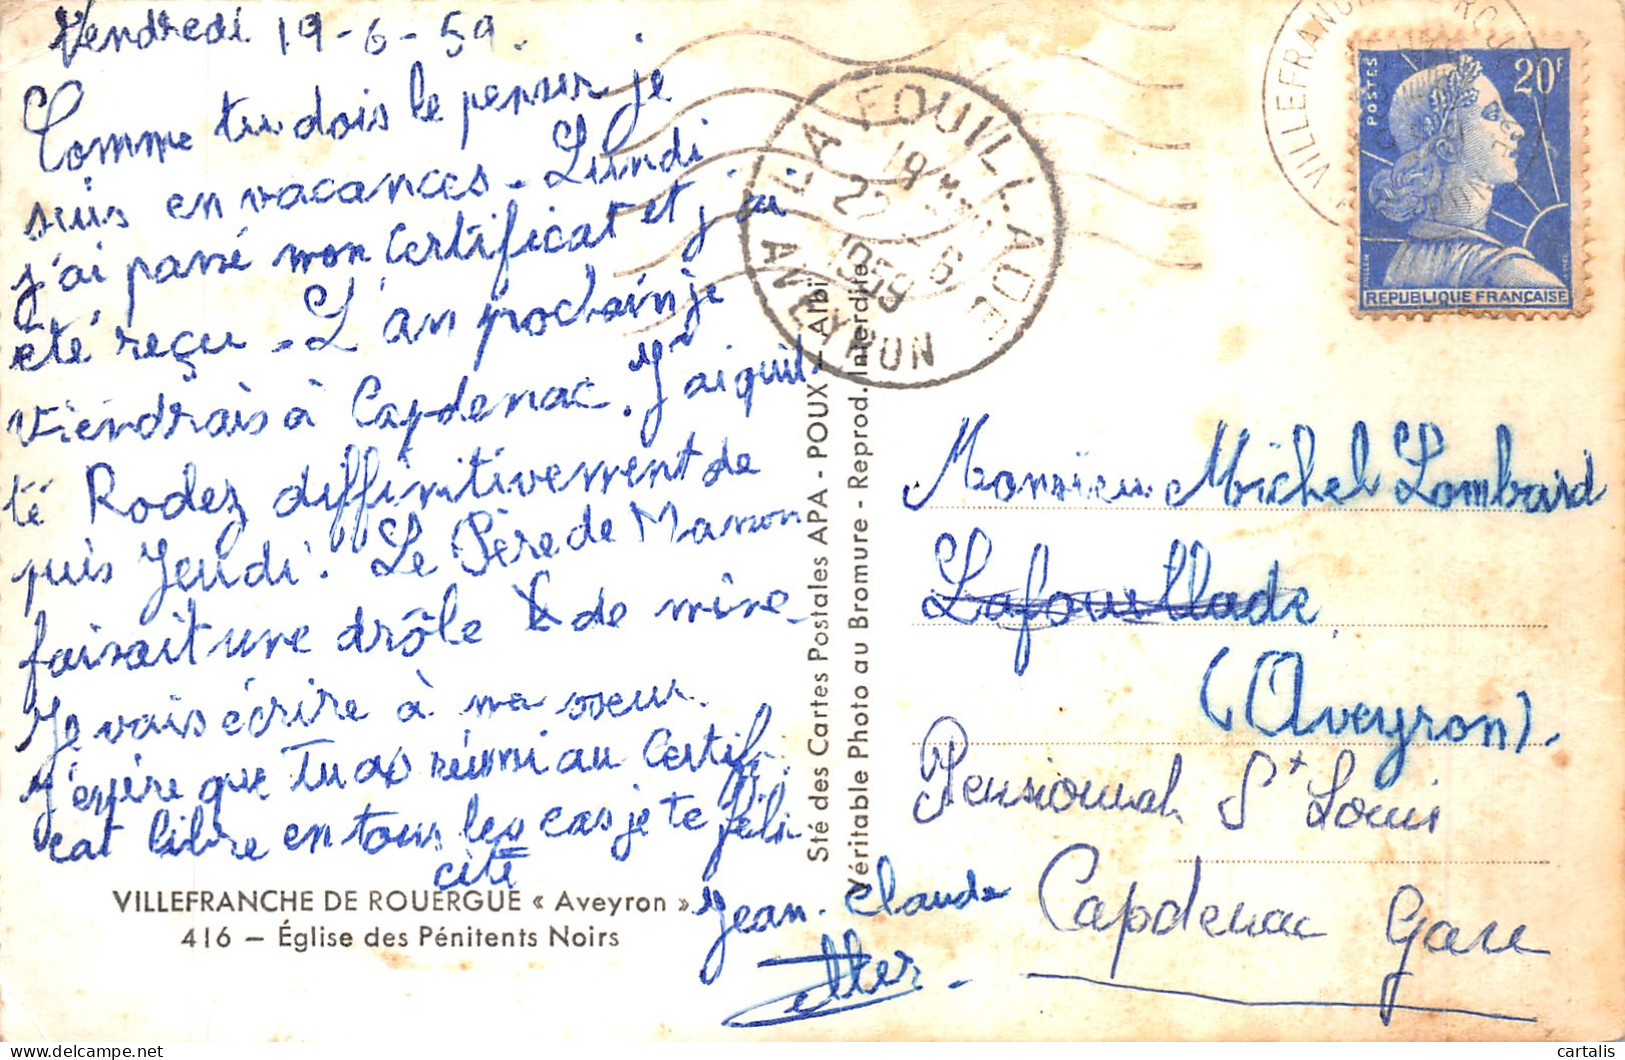 Vendredi 19-6-59.
Comme tu dois le penser je
suis en vacances - Lundi
j'ai passé mon certificat et j'ai
été reçu - L'an prochain je
viendrais à Capdenac. J'ai quit
té Rodez diffinitivement de
puis Jeudi. Le Père de Marron
faisait une drôle de mine.
Je vais écrire à ma soeur.
J'espère que Tu as réussi au Certifi
cat libre en tous les cas je te féli
cite
Jean-Claude
VILLEFRANCHE DE ROUERGUE « Aveyron »
416 – Église des Pénitents Noirs
Sté des Cartes Postales APA - POUX - Albi
Véritable Photo au Bromure - Reprod. Interdite
LA FOUILLADE
19 H
22 6
1959
AVEYRON
VILLEFRANCHE
POSTES
20F
REPUBLIQUE FRANÇAISE
Monsieur Michel Lombard
Lafouillade
(Aveyron).
Pensionnat St Louis
Capdenac Gare
cartalis